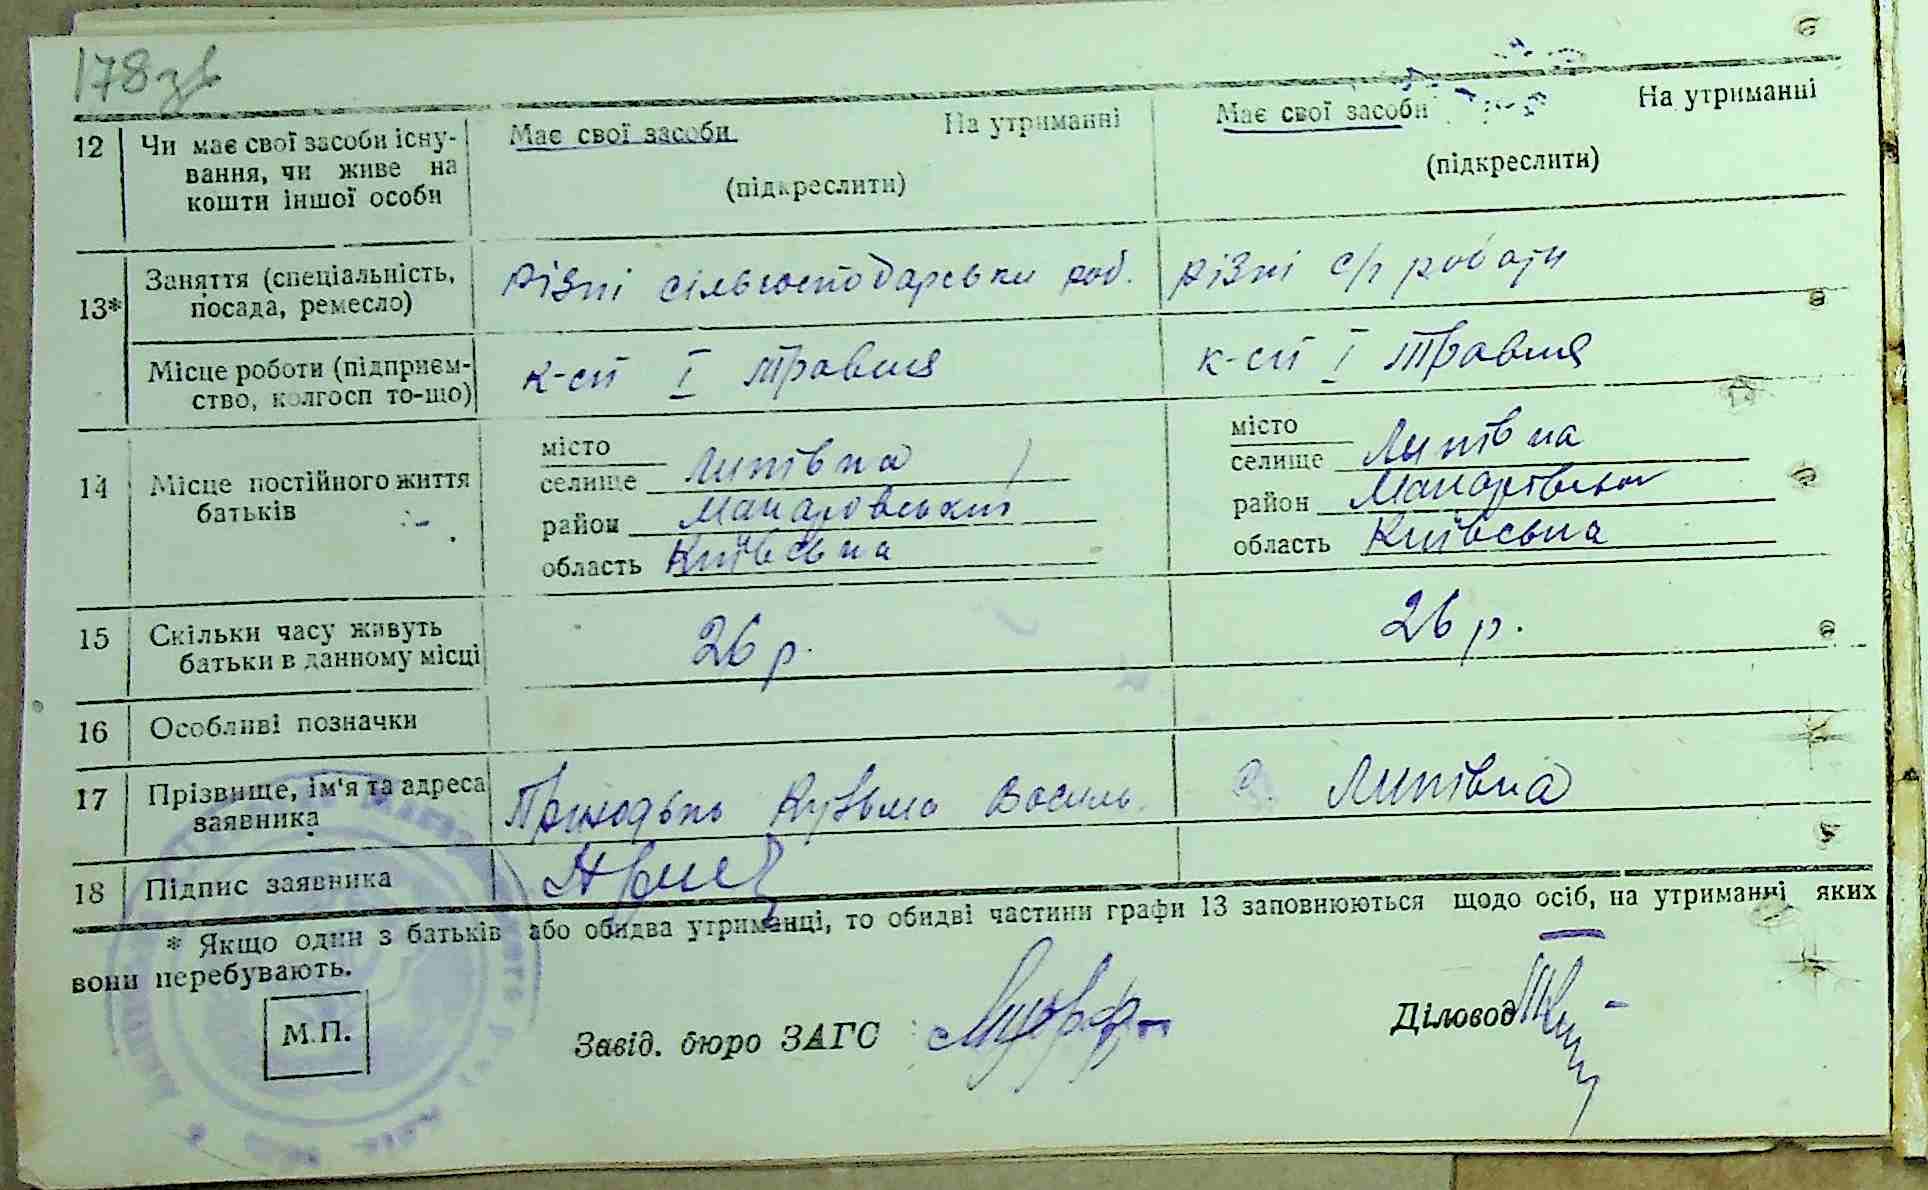 178зв
12 Чи має свої засоби існу- Має свої засоби На утриманні Має свої засоби На утриманні
вання, чи живе на (підкреслити) (підкреслити)
кошти іншої особи
13* Заняття (спеціальність, Різні сільгосподарськи роб. Різні с/г роботи
посада, ремесло)
Місце роботи (підприєм- к-сп І травня к-сп І травня
ство, колгосп то-що)
14 Місце постійного життя місто місто
батьків селище Липівка селище Липівка
район Макаровський район Макарівський
область Київська область Київська
15 Скільки часу живуть 26 р. 26 р.
батьки в данному місці
16 Особливі позначки
17 Прізвище, ім'я та адреса Приходько Кузьма Василь. с. Липівка
заявника
18 Підпис заявника
* Якщо один з батьків або обидва утриманці, то обидві частини графи 13 заповнюються щодо осіб, на утриманні яких
вони перебувають.
М.П. Завід. бюро ЗАГС Діловод